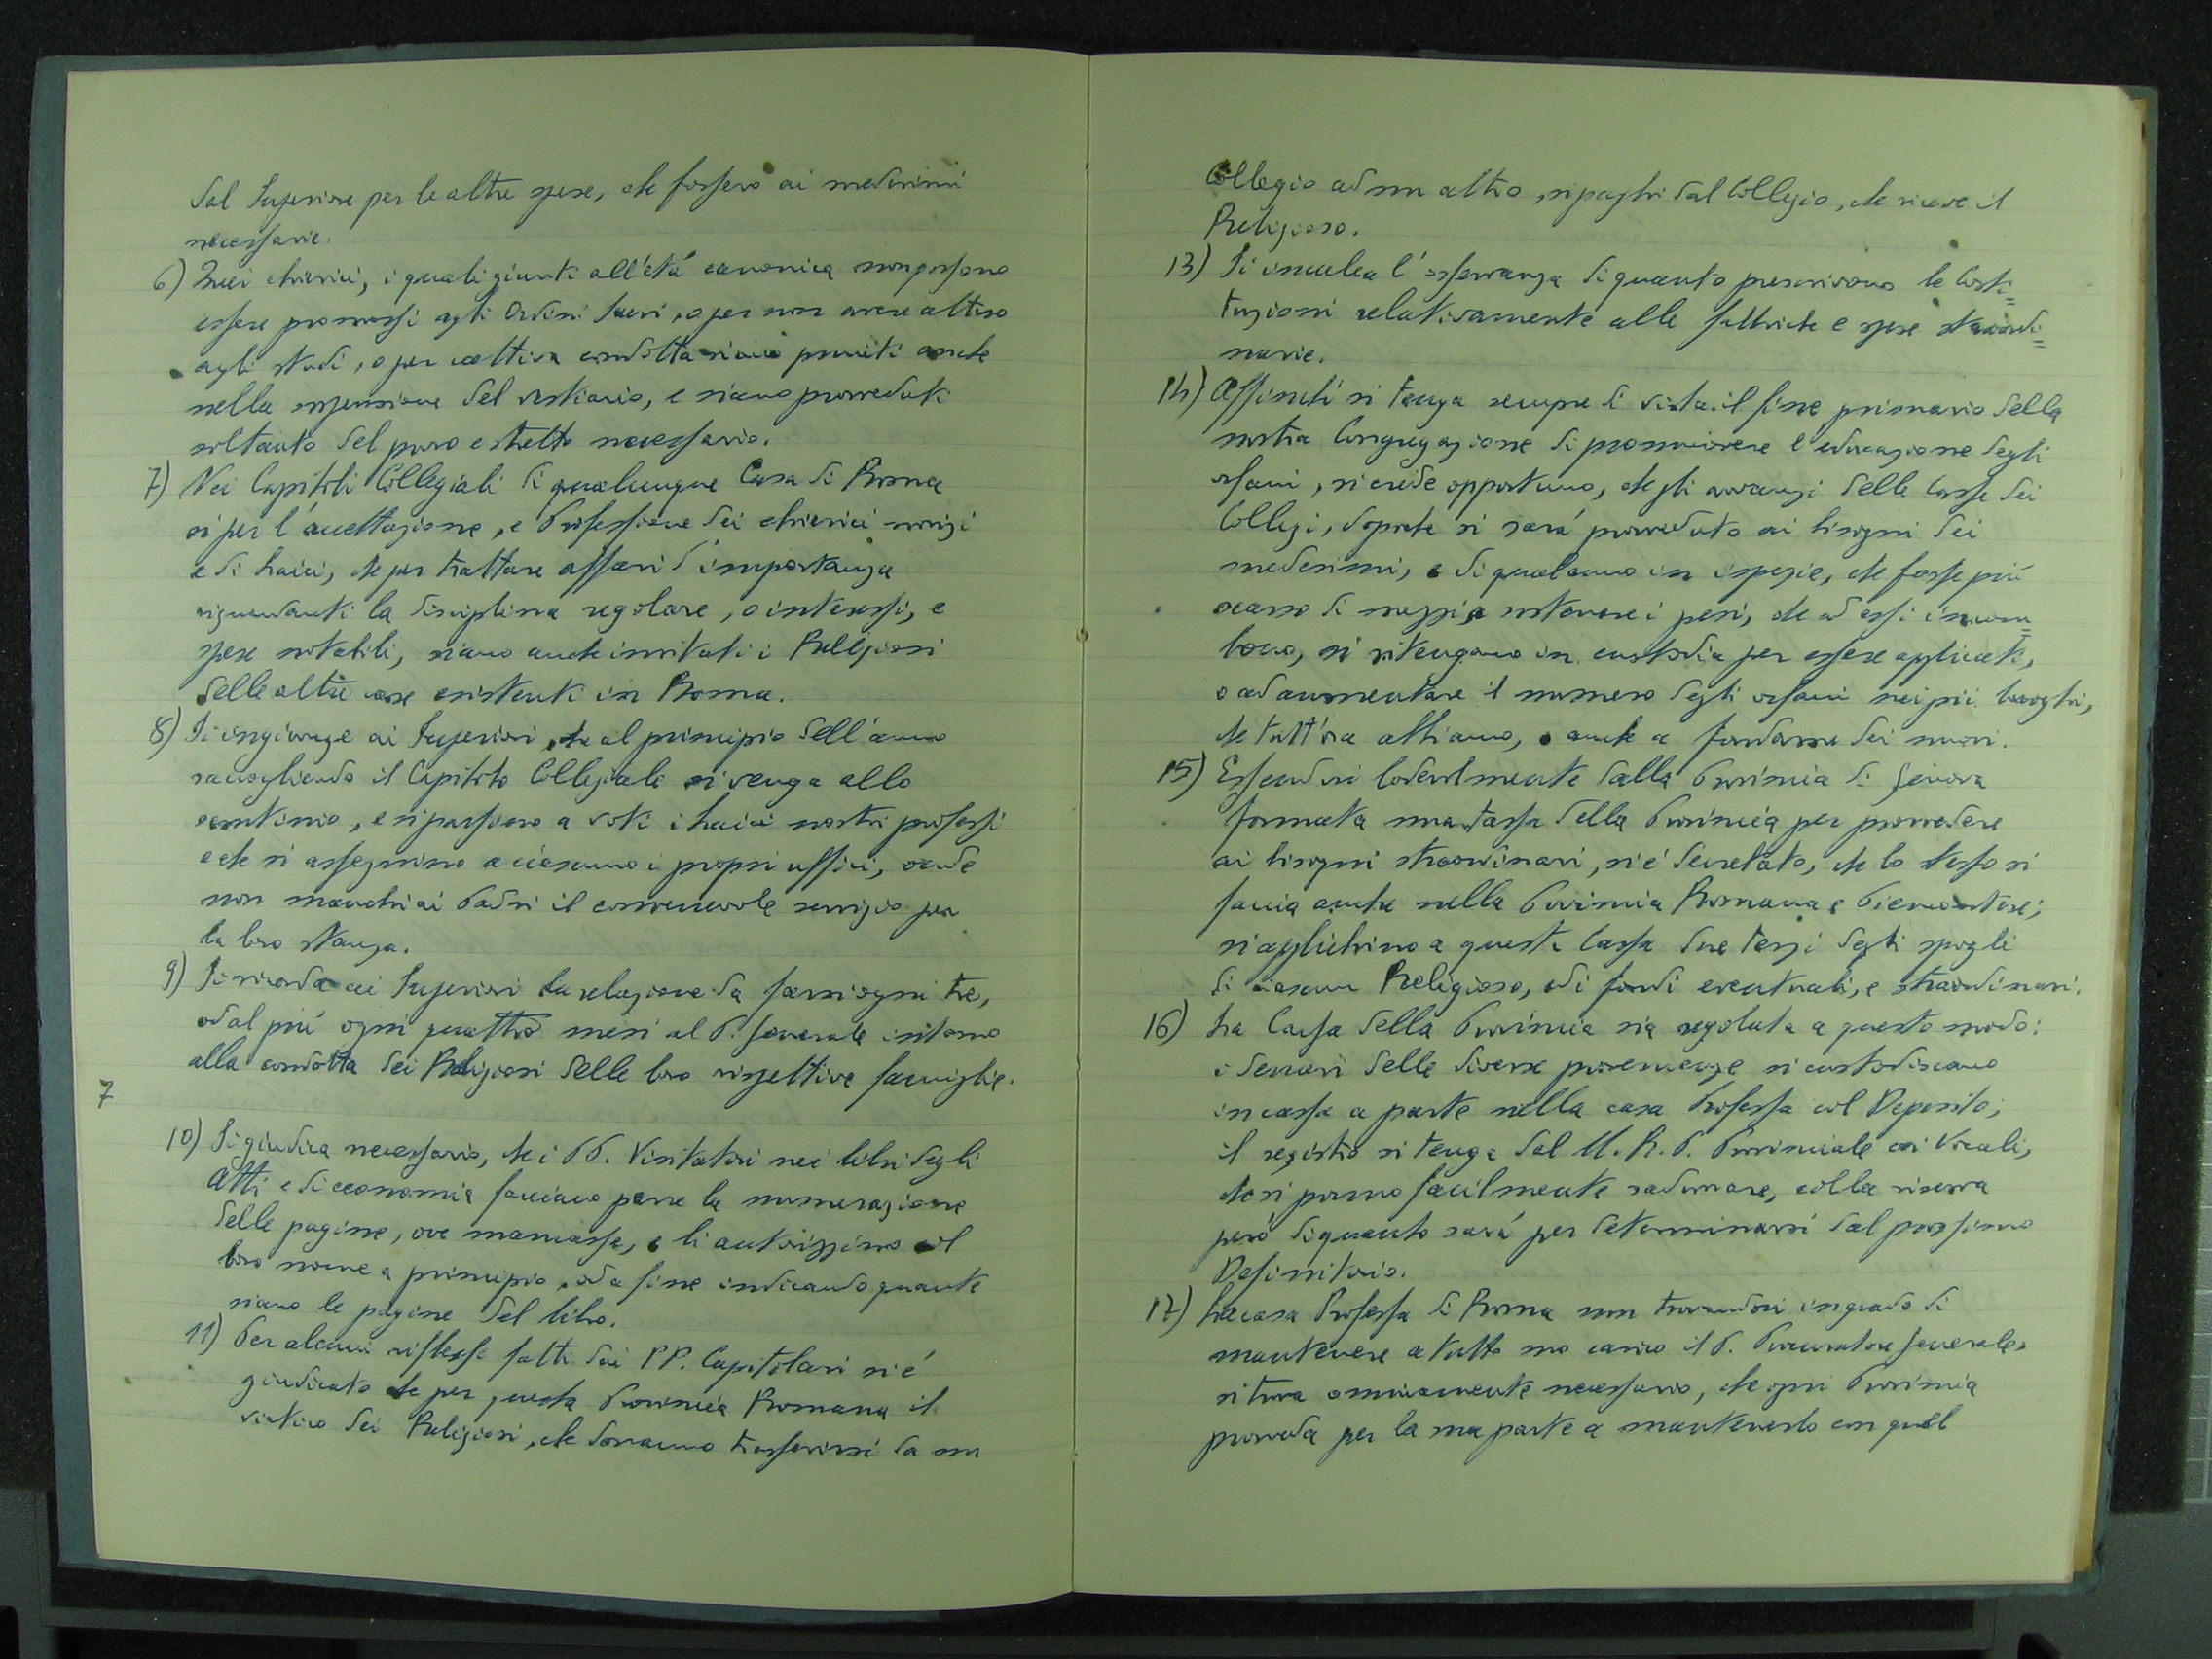 dal Superiore per le altre spese, che fossero ai medesimi
necessarie.
6) Quei chierici, i quali giunti all'etá canonica non possono
essere promossi agli Ordini Sacri, o per non avere atteso
agli studi, o per cattiva condotta siano puniti anche
nella sospensione del vestiario, e siano proveduti
soltanto del puro e stretto necessario.
7) Nei Capitoli Collegiali di qualunque Casa di Roma
si per l'accettazione, e Professione dei chierici novizi
e di Laici, che per trattare affari d'importanza
riguardanti la disciplina regolare, o interessi, e
spese notabili, siano anche invitati i Religiosi
delle altre case esistenti in Roma.
8) Si ingiunge ai Superiori, che al principio dell'anno
raccogliendo il Capitolo Collegiale si venga allo
scrutinio, e si passino a voti i Laici nostri professi
e che si assegnino a ciascuno i propri uffici, onde
non manchi ai Padri il convenevole servizio per
la loro stanza.
9) Si ricorda ai Superiori la relazione da farsi ogni tre,
od al piú ogni quattro mesi al P. Generale intorno
alla condotta dei Religiosi delle loro rispettive famiglie.
7
10) Si giudica necessario, che i PP. Visitatori nei libri degli
Atti e di economia facciano porre la numerazione
delle pagine, ove mancasse, e li autorizzino col
loro nome a principio, od a fine indicando quante
siano le pagine del libro.
11) Per alcuni riflessi fatti dai PP. Capitolari si é
giudicato che per questa Provincia Romana il
viatico dei Religiosi, che dovranno trasferirsi da un
Collegio ad un altro, si paghi dal Collegio, che riceve il
Religioso.
13) Si inculca l'osservanza di quanto prescrivono le Costi=
tuzioni relativamente alle fabbriche e spese straordi=
narie.
14) Affinché si tenga sempre di vista il fine primario della
nostra Congregazione di promuovere l'educazione degli
orfani, si crede opportuno, che gli avvanzi delle Casse dei
Collegi, dopoché si sará proveduto ai bisogni dei
medesimi, e di qualcuno in ispezie, che fosse piú
scarso di mezzi a sostenere i pesi, che ad essi incom=
bono, si ritengano in custodia per essere applicati,
o ad aumentare il numero degli orfani nei pii luoghi,
che tutt'ora abbiamo, o anche a fondarne dei nuovi.
15) Essendosi lodevolmente dalla Provincia di Genova
formata una Cassa della Provincia per provedere
ai bisogni straordinari, si é decretato, che lo stesso si
faccia anche nella Provincia Romana e Piemontese;
si applichino a questa Cassa due terzi degli spogli
di ciascun Religioso, ed i fondi eventuali, e straordinari.
16) La Cassa della Provincia sia regolata a questo modo:
i denari delle diverse provenienze si custodiscano
in cassa a parte nella casa Professa col Deposito;
il registro si tenga dal M. R. P. Provinciale coi Vocali,
che si ponno facilmente radunare, colla riserva
peró di quanto sará per determinarsi dal prossimo
Definitorio.
17) La casa Professa di Roma non trovandosi in grado di
mantenere a tutto suo carico il P. Procuratore Generale,
si trova onninamente necessario, che ogni Provincia
proveda per la sua parte a mantenerlo con quel